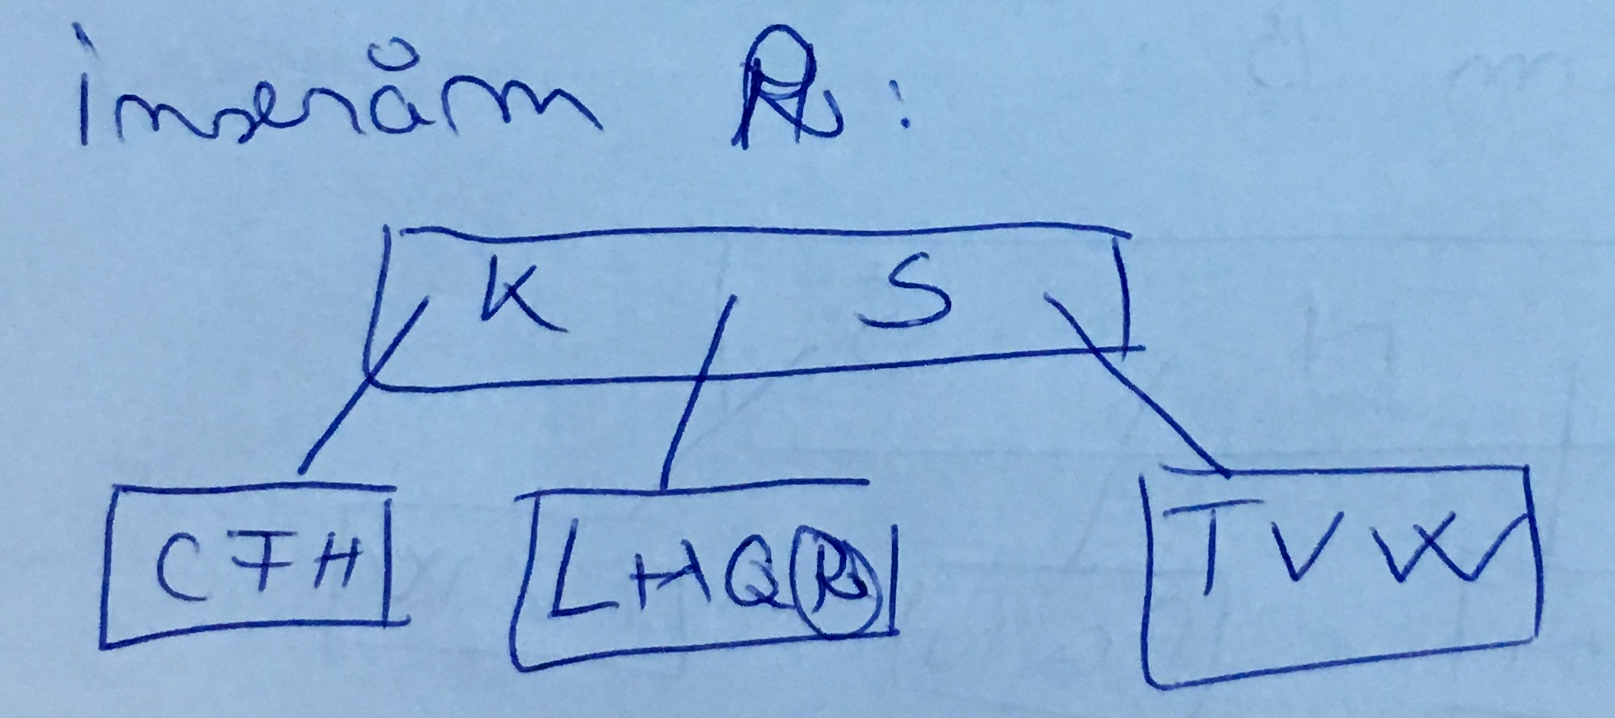 Inserăm R:
K S
C F H L M Q R T V W